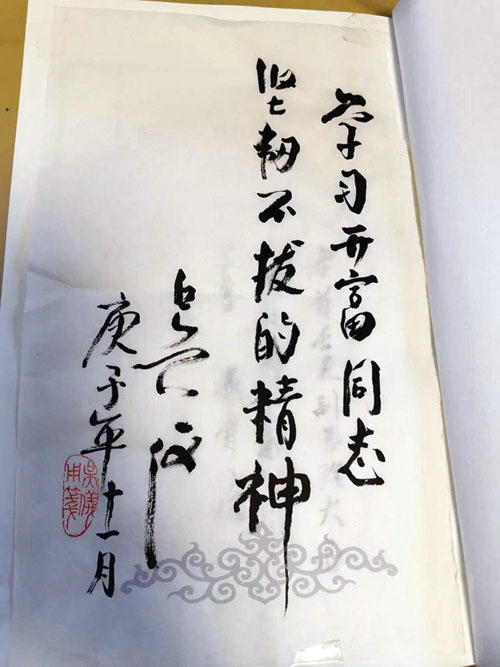 学习开富同志
坚韧不拔的精神
吴仪
庚子年十一月
吴仪用笺